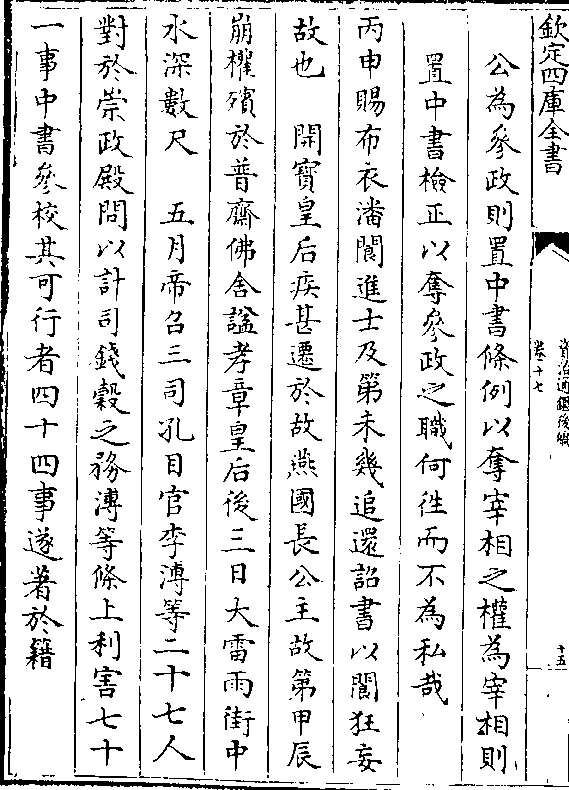 欽定四庫全書
資治通鑑後編
卷十七
十五
公為參政則置中書條例以奪宰相之權為宰相則
置中書檢正以奪參政之職何往而不為私哉
丙申賜布衣潘閬進士及第未幾追還詔書以閬狂妄
故也　開寶皇后疾甚遷於故燕國長公主故第甲辰
崩權殯於普齋佛舍諡孝章皇后後三日大雷雨街中
水深數尺　五月帝召三司孔目官李溥等二十七人
對於崇政殿問以計司錢穀之務溥等條上利害七十
一事中書參校其可行者四十四事遂著於籍